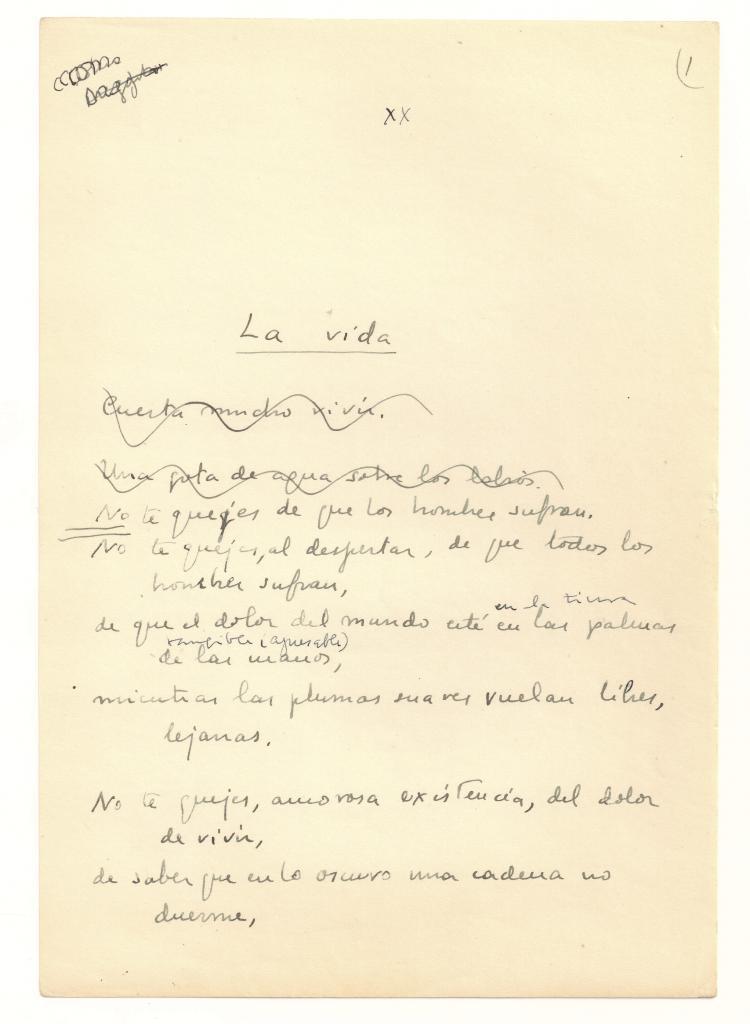 (1
XX
La vida
Cuesta mucho vivir.
Una gota de agua sobre los labios.
No te quejes de que los hombres sufran.
No te quejes, al despertar, de que todos los
hombres sufran,
en la tierra
de que el dolor del mundo esté en las palmas
tangible
de las manos,
mientras las plumas suaves vuelan libres,
lejanas.
No te quejes, amorosa existencia, del dolor
de vivir,
de saber que en lo oscuro una cadena no
duerme,